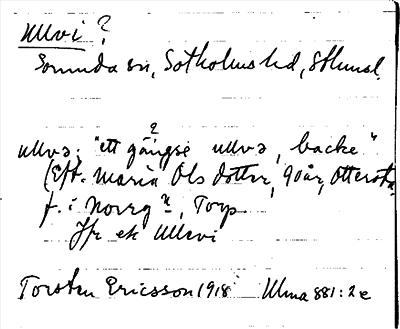 Ullvi ?
Sorunda sn, Sotholms hd, Sthlms l.
?
ullvə: "ett gängse ullvə, backe"
(Eft. Maria Ols dotter, 90 år, Ottersta,
f. i Norrg n, Torp
Jfr ek Ullevi
Torsten Ericsson 1918 Ulma 881:2e